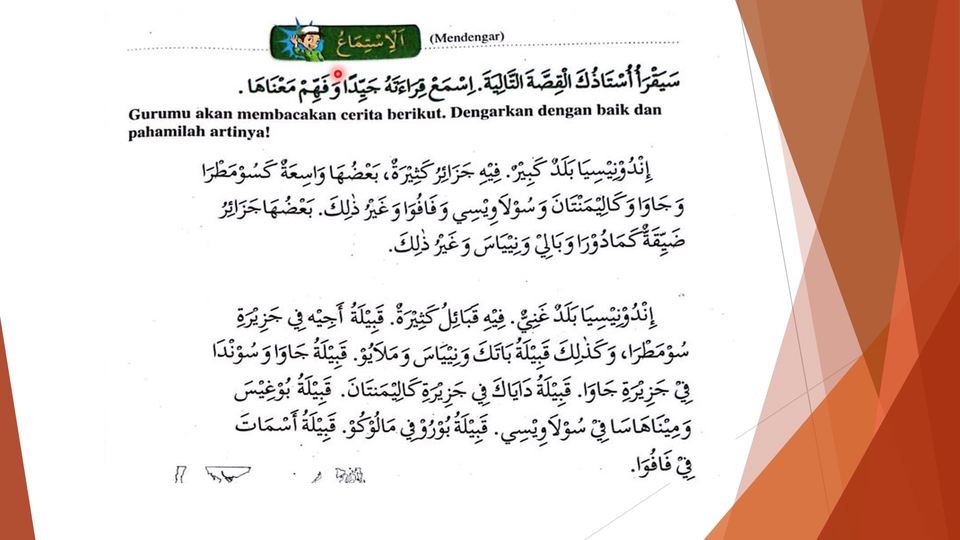 اَلْاِسْتِمَاعُ (Mendengar)
سَيَقْرَأُ أُسْتَاذُكَ الْقِصَّةَ التَّالِيَةَ. اِسْمَعْ قِرَاءَتَهُ جَيِّدًا وَفَهِّمْ مَعْنَاهَا.
Gurumu akan membacakan cerita berikut. Dengarkan dengan baik dan
pahamilah artinya!
إِنْدُوْنِيْسِيَا بَلَدٌ كَبِيْرٌ. فِيْهِ جَزَائِرُ كَثِيْرَةٌ، بَعْضُهَا وَاسِعَةٌ كَسُوْمَطْرَا
وَجَاوَا وَكَالِيْمَنْتَانَ وَسُوْلَاوِيْسِي وَفَافُوَا وَغَيْرُ ذٰلِكَ. بَعْضُهَا جَزَائِرُ
ضَيِّقَةٌ كَمَادُوْرَا وَبَالِيْ وَنِيْيَاسَ وَغَيْرُ ذٰلِكَ.
إِنْدُوْنِيْسِيَا بَلَدٌ غَنِيٌّ. فِيْهِ قَبَائِلُ كَثِيْرَةٌ. قَبِيْلَةُ أَجِيْه فِي جَزِيْرَةِ
سُوْمَطْرَا، وَكَذٰلِكَ قَبِيْلَةُ بَاتَكَ وَنِيْيَاسَ وَمَلَايُوْ. قَبِيْلَةُ جَاوَا وَسُوْنْدَا
فِيْ جَزِيْرَةِ جَاوَا. قَبِيْلَةُ دَايَاكَ فِي جَزِيْرَةِ كَالِيْمَنتَانَ. قَبِيْلَةُ بُوْغِيْسَ
وَمِيْنَاهَاسَا فِيْ سُوْلَاوِيْسِي. قَبِيْلَةُ بُوْرُوْ فِي مَالُوْكُوْ. قَبِيْلَةُ أَسْمَاتَ
فِيْ فَافُوَا.